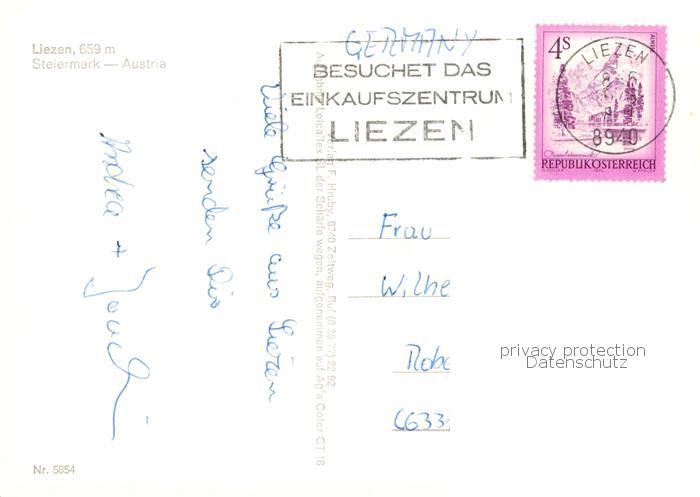 Liezen, 659 m
Steiermark — Austria
GERMANY
BESUCHET DAS
EINKAUFSZENTRUM
LIEZEN
4S
ALMSEE
REPUBLIK ÖSTERREICH
LIEZEN
8940
Viele Grüße aus Liezen
senden Dir
Andrea +
Verlag F. Hruby, 8740 Zeltweg, Ruf (0 35 77) 22 92
der Schärfe wegen, aufgenommen auf Agfa Color CT 18
Frau
Wilhe
Robe
6633
privacy protection
Datenschutz
Nr. 5854